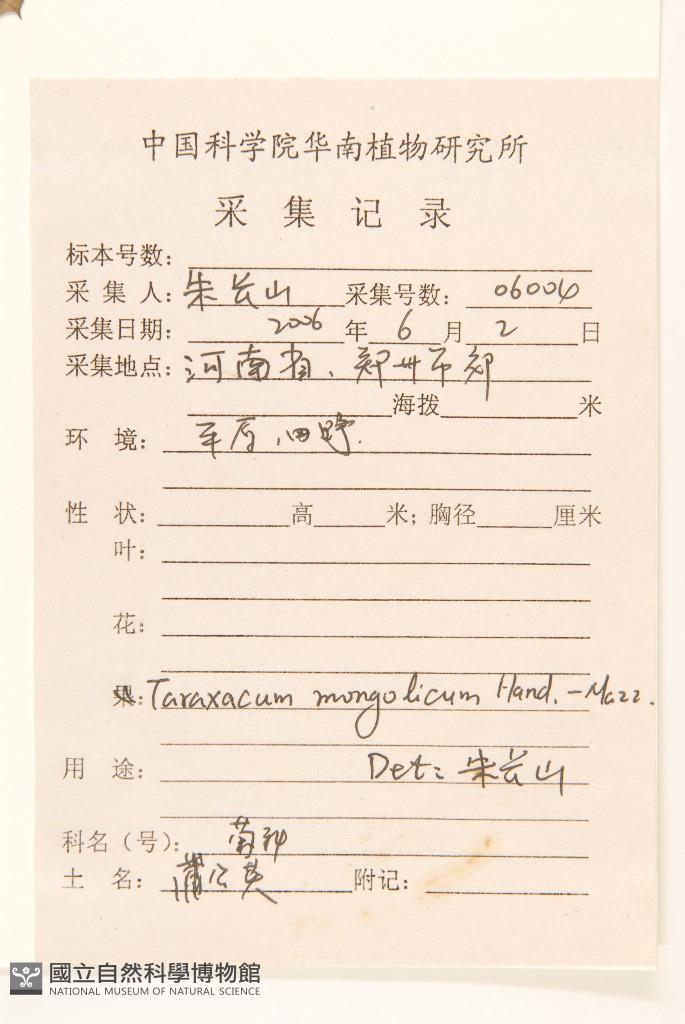 中国科学院华南植物研究所
采集记录
标本号数：
采集人：朱长山 采集号数：06004
采集日期：2006年6月2日
采集地点：河南省、郑州市郊
海拨 米
环境：平原、田野.
性状： 高 米；胸径 厘米
叶：
花：
果：Taraxacum mongolicum Hand.-Mazz.
用途： Det: 朱长山
科名（号）：菊科
土名：蒲公英 附记：
國立自然科學博物館
NATIONAL MUSEUM OF NATURAL SCIENCE